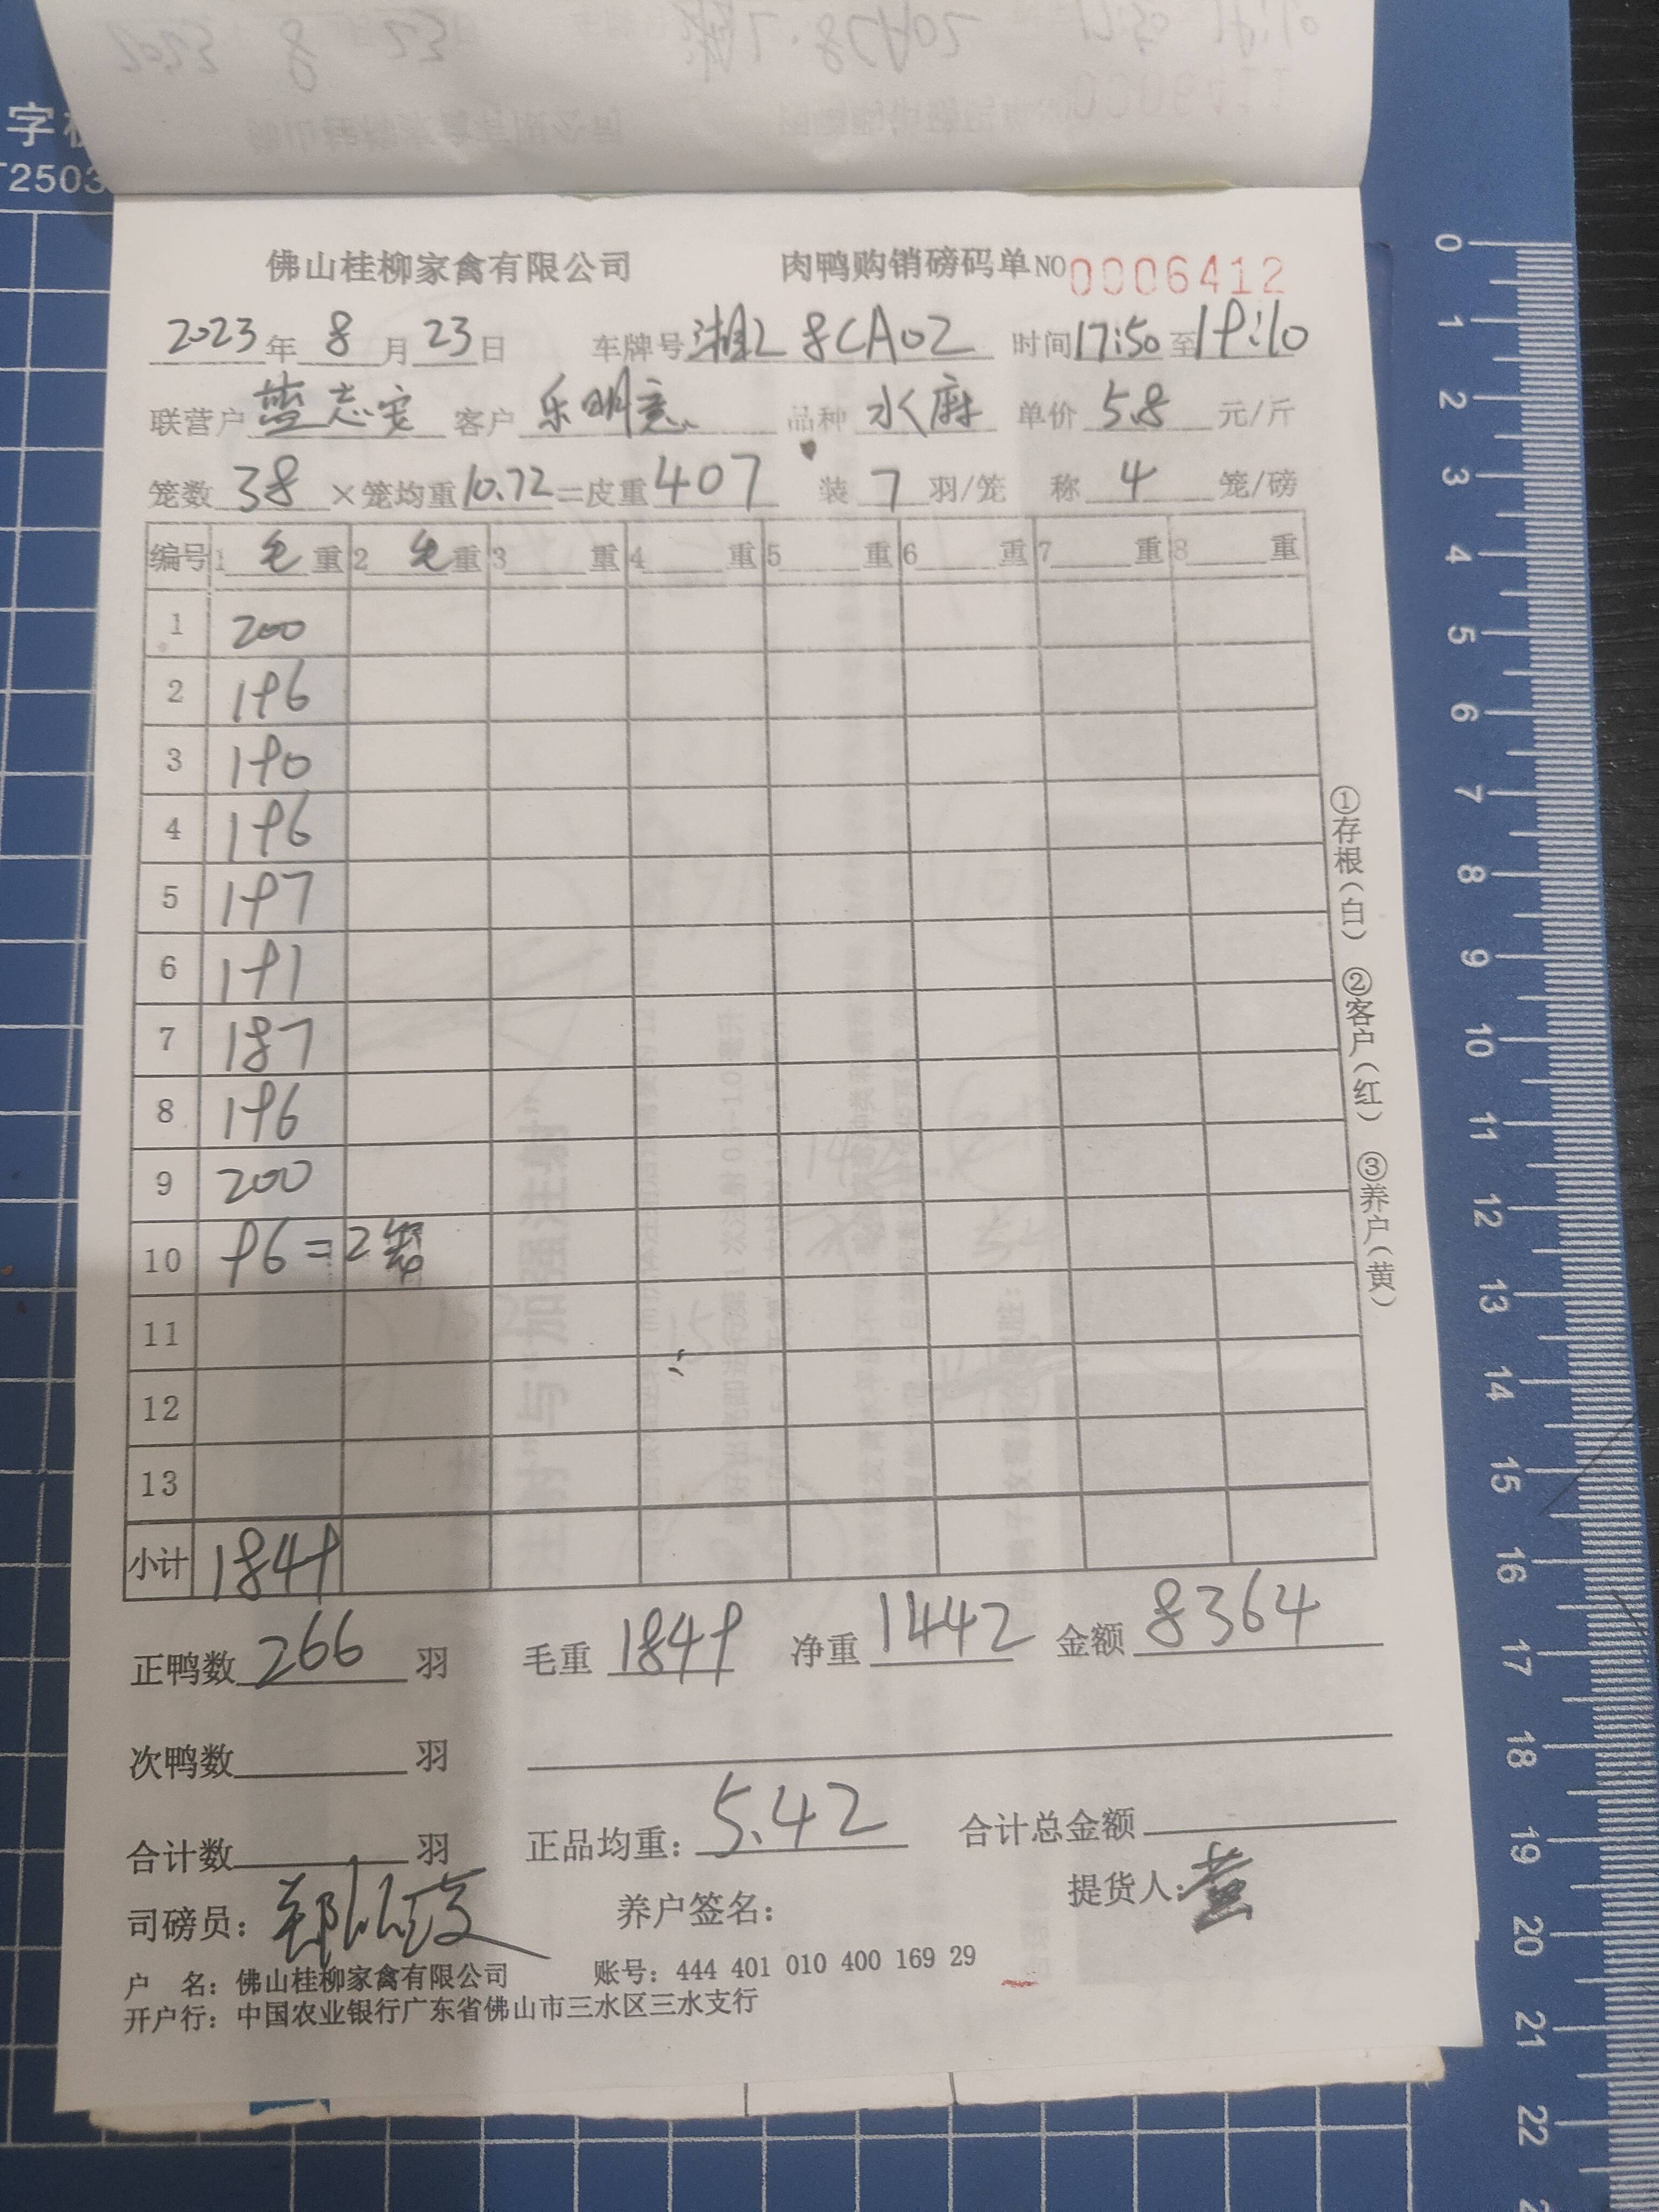 佛山桂柳家禽有限公司 肉鸭购销磅码单 NO 0006412
2023年 8月 23日 车牌号 湘L 8CA02 时间 17:50 至 19:10
联营户 蓝志安 客户 乐明意 品种 水麻 单价 5.8 元/斤
笼数 38 ×笼均重 10.72 =皮重 407 装 7 羽/笼 称 4 笼/磅
编号 1 毛重 2 毛重 3 重 4 重 5 重 6 重 7 重 8 重
1 200
2 196
3 190
4 196
5 197
6 191
7 187
8 196
9 200
10 96=2笼
11
12
13
小计 1849
正鸭数 266 羽 毛重 1849 净重 1442 金额 8364
次鸭数 羽
合计数 羽 正品均重: 5.42 合计总金额
司磅员: 养户签名: 提货人:
户 名: 佛山桂柳家禽有限公司 账号: 444 401 010 400 169 29
开户行: 中国农业银行广东省佛山市三水区三水支行
①存根(白) ②客户(红) ③养户(黄)
0
1
2
3
4
5
6
7
8
9
10
11
12
13
14
15
16
17
18
19
20
21
22